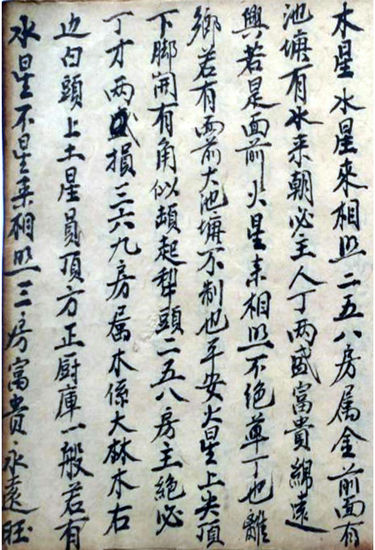 木星水星來相照二五八房属金前面有
池塘有水来朝必主人丁兩盛富貴綿遠
興若是面前火星来相照不絕單丁也離
鄉若有面前大池塘不制也平安火星上尖頂
下脚開有角似頡起犁頭二五八房主絕必
丁才两盛損三六九房属木係大林木右
边白頭上土星員頂方正厨庫一般若有
水星不星来相照三房富貴永遠旺